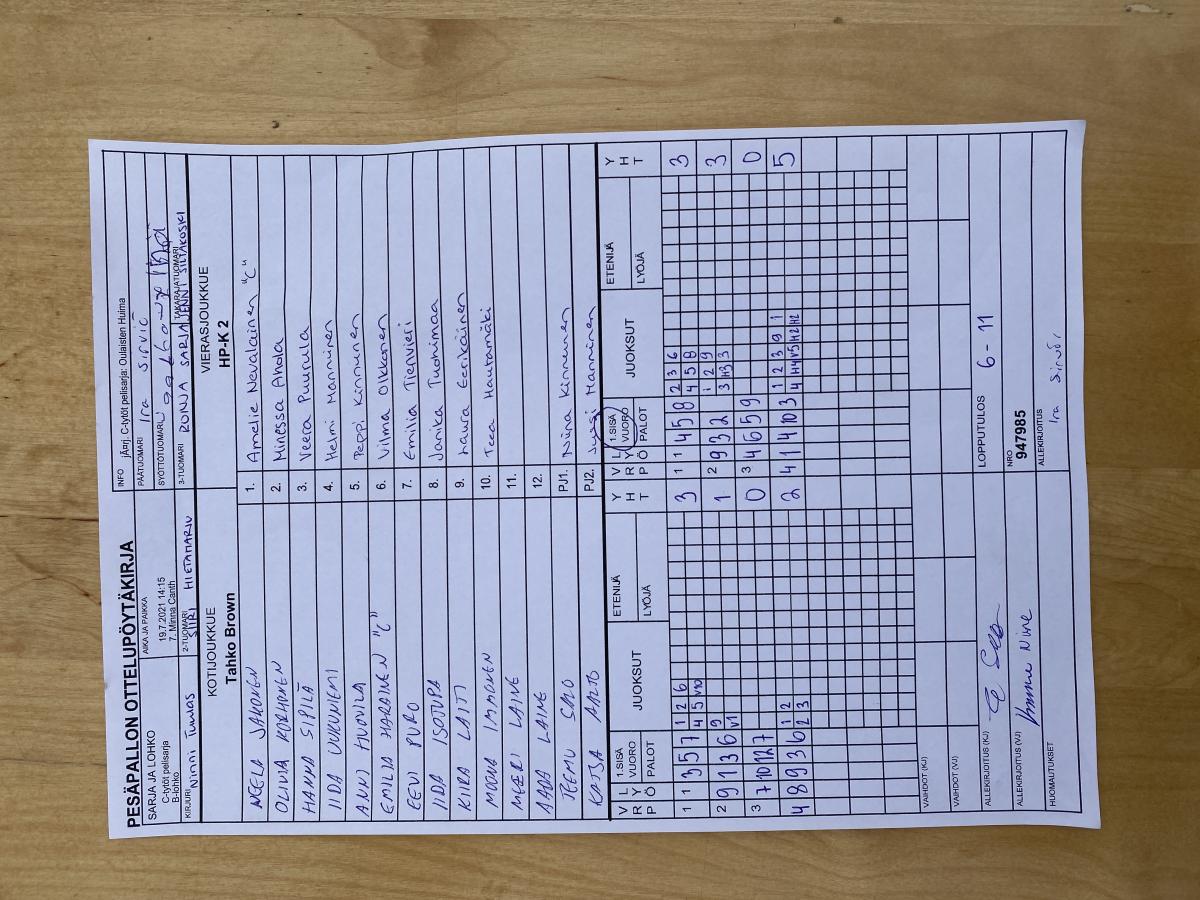 PESÄPALLON OTTELUPÖYTÄKIRJA
SARJA JA LOHKO
C-tytöt pelisarja
B-lohko
AIKA JA PAIKKA
19.7.2021 14:15
7. Minna Canth
INFO jÄ¤rj. C-tytöt pelisarja: Oulaisten Huima
PÄÄTUOMARI Ira Sirviö
SYÖTTÖTUOMARI
KIRJURI Ninni Tuulas
2-TUOMARI SIIRI HIETAHARJU
3-TUOMARI RONJA SARJA
TAKARAJATUOMARI JENNI SILTAKOSKI
KOTIJOUKKUE
Tahko Brown
VIERASJOUKKUE
HP-K 2
NEELA JAHONEN 1. Amelie Nevalainen "C"
OLIVIA KORHONEN 2. Minessa Ahola
HANNA SIPILÄ 3. Veera Puurula
IIDA UURUNIEMI 4. Helmi Manninen
ANNI HUOVILA 5. Peppi Kinnunen
EMILIA "C" 6. Vilma Olkkonen
EEVI PURO 7. Emilia Tienvieri
IIDA ISOTUPA 8. Janika Tuohimaa
KIIRA LAITI 9. Laura Eerikäinen
MOONA IMMONEN 10. Teea Hautamäki
MEERI LAINE 11.
LAINE 12.
TEEMU SALO PJ1. Niina Kinnunen
KATJA AALTO PJ2. Jyrki Manninen
V R P L Y Ö 1.SISÄ VUORO PALOT JUOKSUT ETENIJÄ LYÖJÄ Y H T
V R P L Y Ö 1.SISÄ VUORO PALOT JUOKSUT ETENIJÄ LYÖJÄ Y H T
1 1 3 5 7 1 2 6 3
4 5 V10
1 1 4 5 8 2 3 6 3
4 5 8
2 9 1 3 6 9 1
V1
2 9 3 2 1 2 9 3
3 H3 3
3 7 10 12 7 0
3 4 6 5 9 0
4 8 9 3 6 1 2 2
2 3
2 4 1 4 10 3 1 2 3 9 1 5
4 H4 V5 H2 H2
VAIHDOT (KJ)
VAIHDOT (VJ)
ALLEKIRJOITUS (KJ)
LOPPUTULOS 6 - 11
ALLEKIRJOITUS (VJ)
NRO
947985
HUOMAUTUKSET
ALLEKIRJOITUS
Ira Sirviö